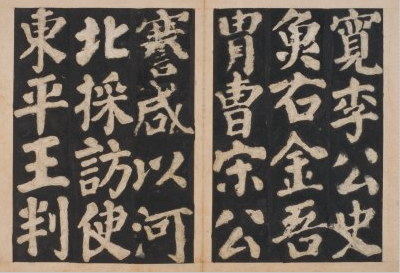 寬李公史
魚右金吾
冑曹宋公
謇咸以河
北採訪使
東平王判